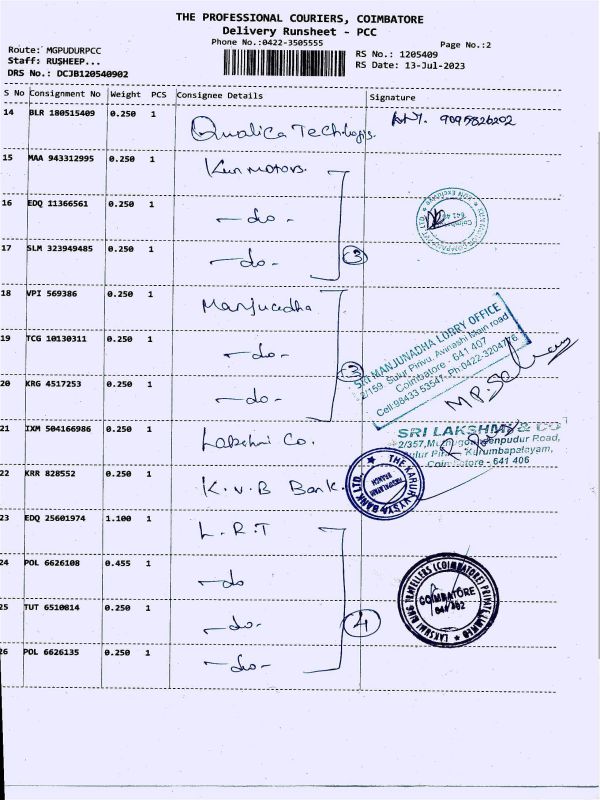 THE PROFESSIONAL COURIERS, COIMBATORE
Delivery Runsheet - PCC
Phone No.:0422-3505555
Page No.:2
Route: MGPUDURPCC
RS No.: 1205409
Staff: RUSHEEP...
RS Date: 13-Jul-2023
DRS No.: DCJB120540902
S No Consignment No Weight PCS Consignee Details Signature
14 BLR 180515409 0.250 1 Qualica 9095826202
15 MAA 943312995 0.250 1 Kun Motors.
16 EDQ 11366561 0.250 1 -do-
17 SLM 323949485 0.250 1 -do- 3
18 VPI 569386 0.250 1 Manjunadha
19 TCG 10130311 0.250 1 -do- 3
20 KRG 4517253 0.250 1 -do-
21 IXM 504166986 0.250 1 Lakshmi Co.
22 KRR 828552 0.250 1 K.V.B Bank.
23 EDQ 25601974 1.100 1 L.R.T
24 POL 6626108 0.455 1 -do
25 TUT 6510814 0.250 1 -do- 4
26 POL 6626135 0.250 1 -do-
SRI MANJUNADHA LORRY OFFICE
2/159, Sulur Pirivu, Avinashi Main road
Coimbatore - 641 407
Cell:98433 53547 Ph 0422-3204776
SRI LAKSHMI & CO
Sulur Kurumbapalayam,
Coimbatore - 641 406
THE KARUR VYSYA BANK LTD.
BRANCH
LAKSHMI RING TRAVELLERS (COIMBATORE) PRIVATE LIMITED
COIMBATORE
641 402